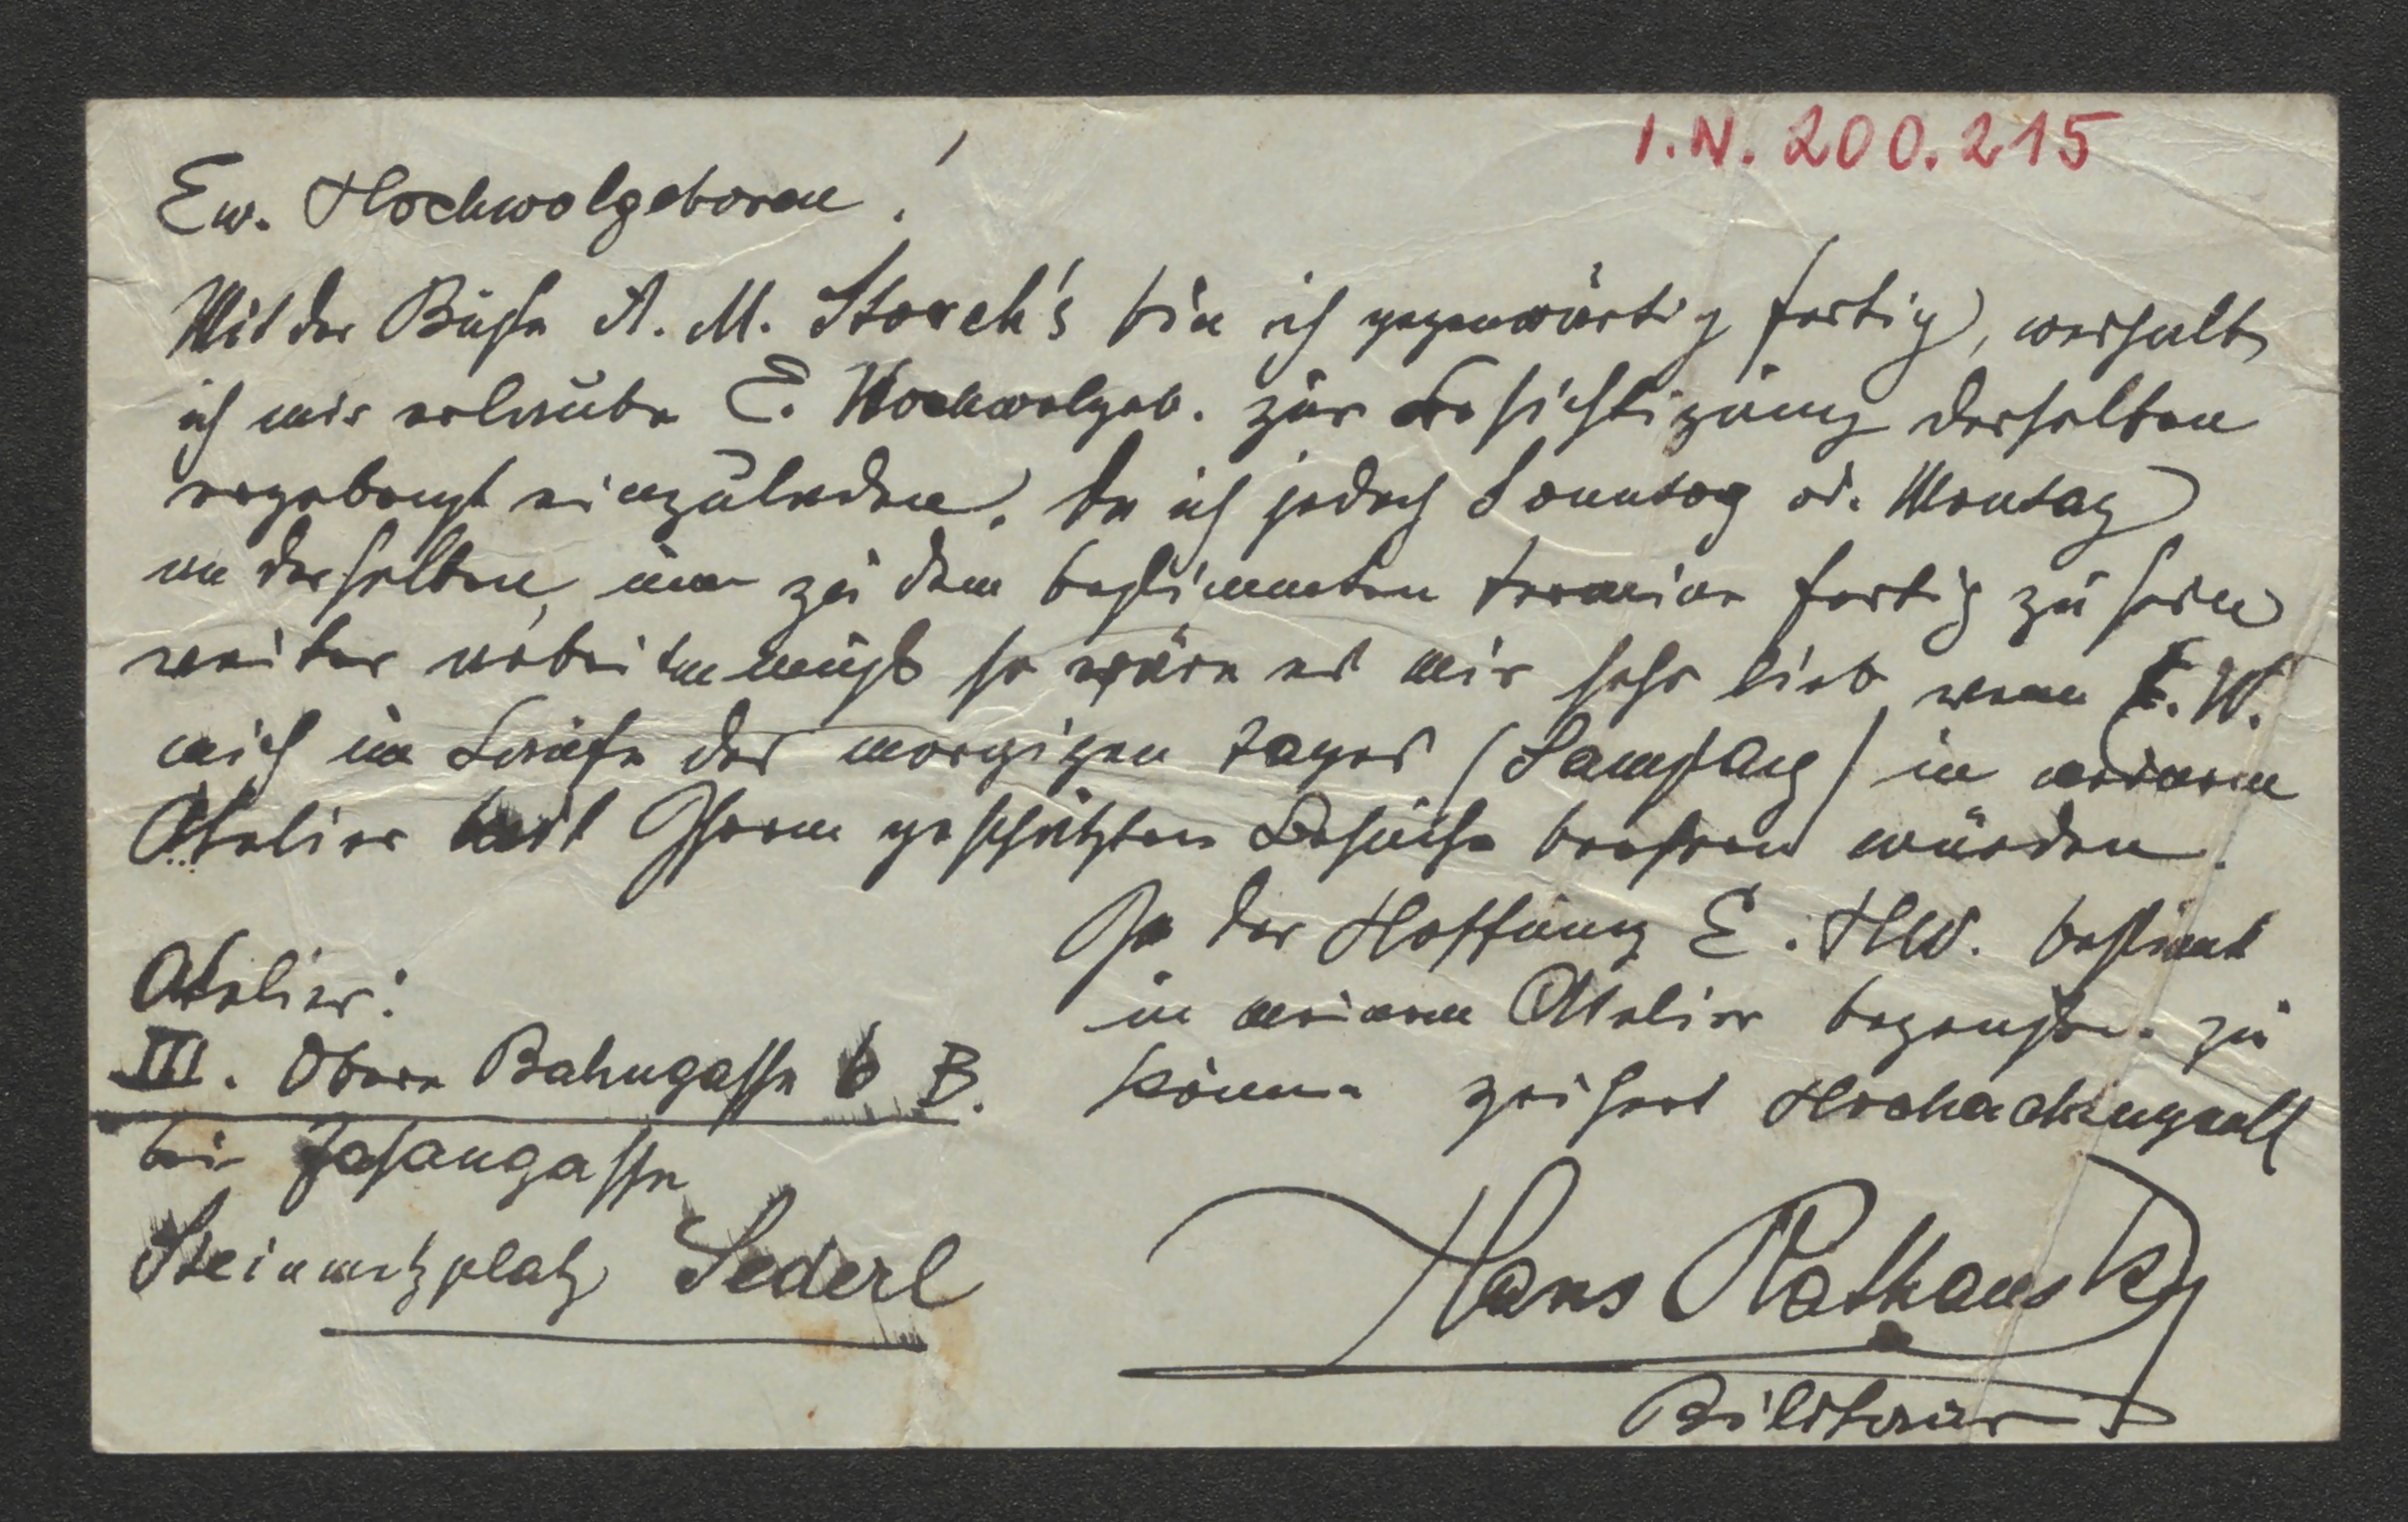 I.N. 200.215
Ew. Hochwolgeboren!
Mit der Büste A. M. Storch's bin ich gegenwärtig fertig, weshalb
ich mir erlaube E. Hochwolgeb. zur Besichtigung derselben
ergebenst einzuladen. Da ich jedoch Sonntag od. Montag
an derselben, um zu dem bestimmten Termine fertig zu sein
weiter arbeiten muß so wäre es mir sehr lieb wenn E. W.
mich im Laufe des morgigen Tages (Samstag) in meinem
Atelier mit Ihrem geschätzten Besuche beehren würden.
In der Hoffnung E. HW. bestimmt
in meinem Atelier begrüßen zu
können zeichnet Hochachtungsvoll
Hans Rathausky
Bildhauer
Atelier:
III. Obere Bahngasse 6 B.
bei Fasangasse
Steinmetzplatz Sederl